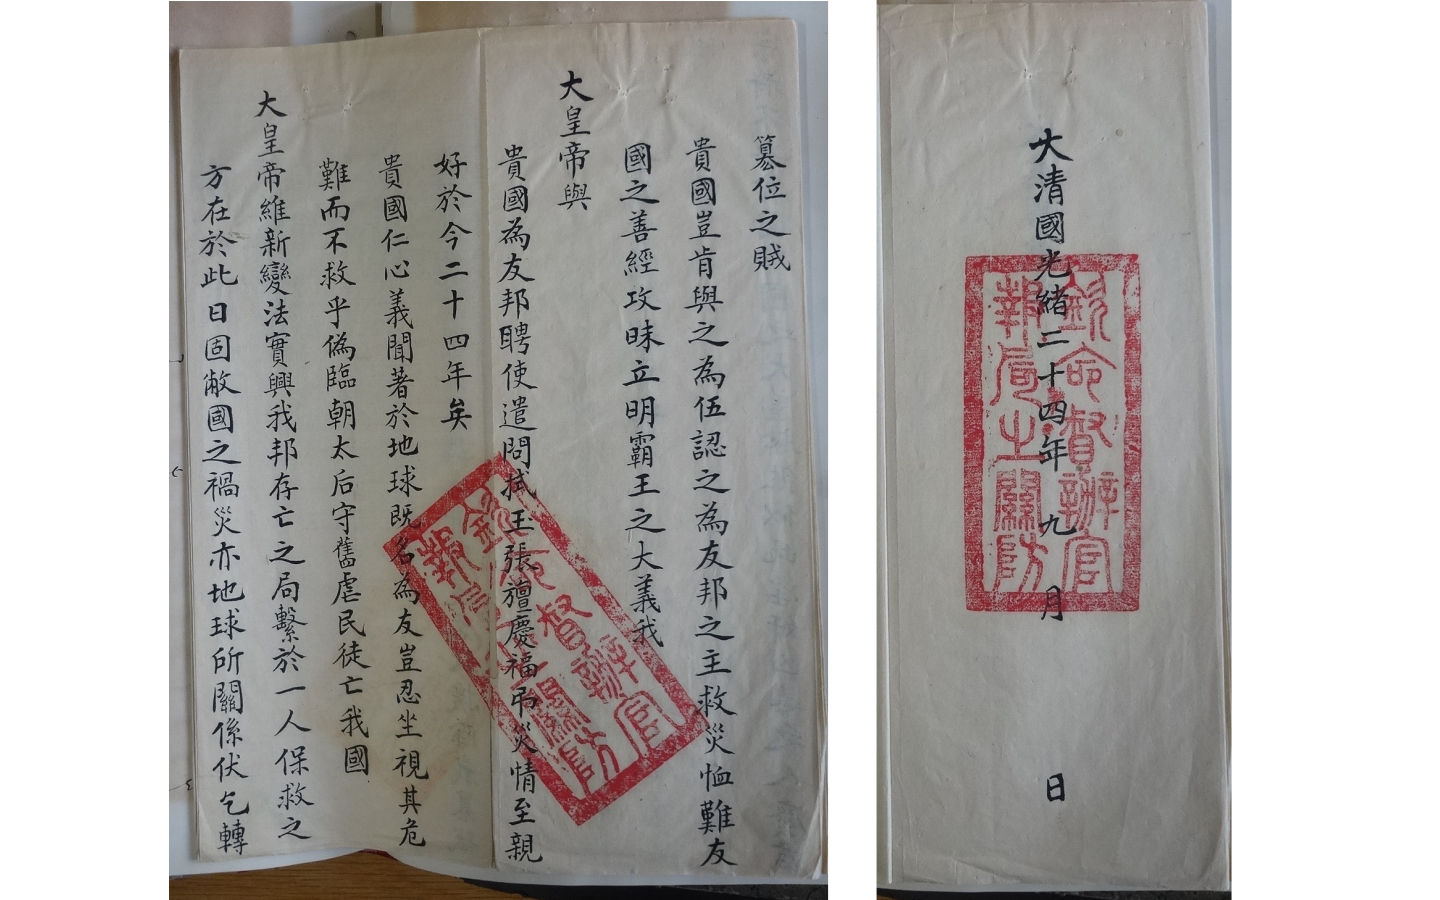 篡位之賊
貴國豈肯與之為伍認之為友邦之主救災恤難友
國之善經攻昧立明霸王之大義我
大皇帝與
貴國為友邦聘使遣問拭玉張旜慶福弔災情至親
好於今二十四年矣
貴國仁心義聞著於地球既名為友豈忍坐視其危
難而不救乎偽臨朝太后守舊虐民徒亡我國
大皇帝維新變法實興我邦存亡之局繫於一人保救之
方在於此日固敝國之禍災亦地球所關係伏乞轉
欽命督辦官
報局之關防
大清國光緒二十四年九月日
欽命督辦官
報局之關防